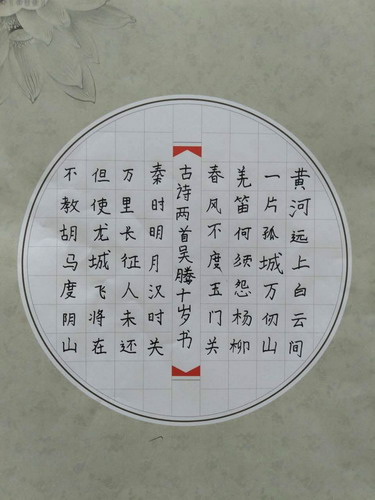 黄河远上白云间
一片孤城万仞山
羌笛何须怨杨柳
春风不度玉门关
古诗两首吴腾十岁书
秦时明月汉时关
万里长征人未还
但使龙城飞将在
不教胡马度阴山